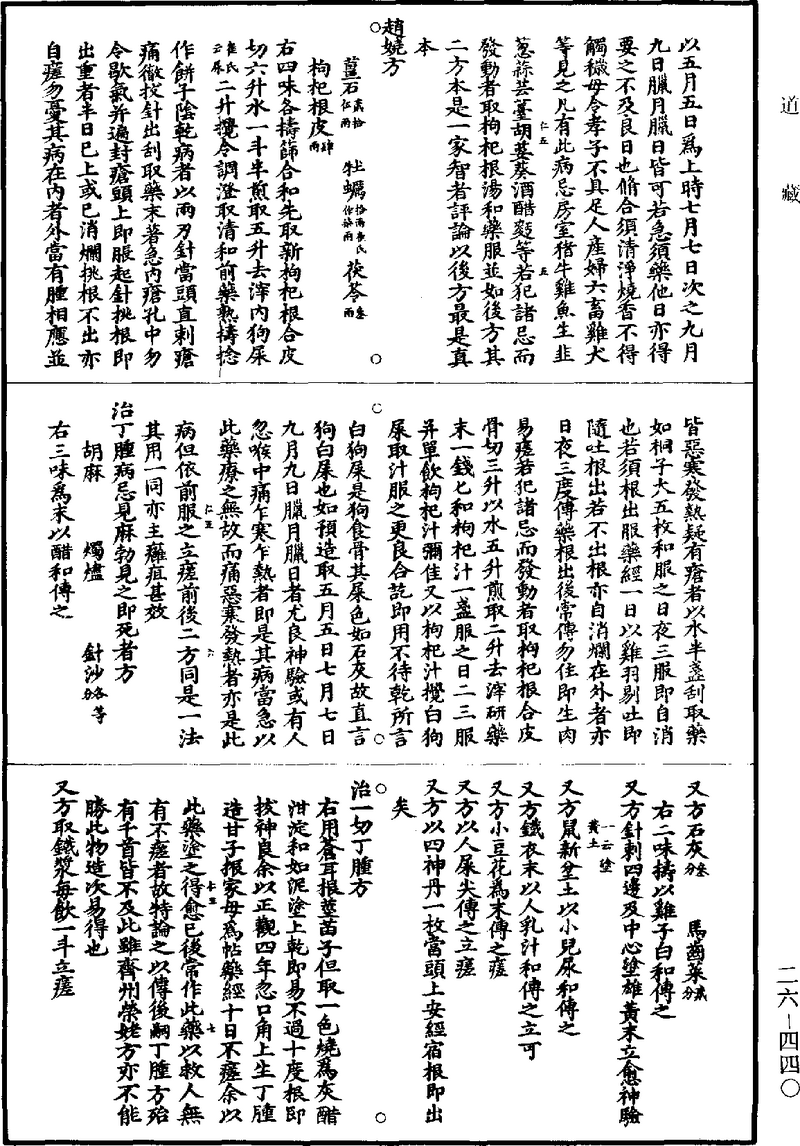 道藏
以五月五日爲上時七月七日次之九月
九日臘月臘日皆可若急須藥他日亦得
要之不及良日也脩合須清淨燒香不得
觸穢毋令孝子不具足人産婦六畜雞犬
等見之凡有此病忌房室猪牛雞魚生韭
葱蒜芸薹胡荽葵酒醋麪等若犯諸忌而
發動者取枸杞根湯和藥服並如後方其
二方本是一家智者評論以後方最是真
本
趙嬈方
薑石 牡蠣 茯苓
枸杞根皮
右四味各擣篩合和先取新枸杞根合皮
切六升水一斗半煎取五升去滓内狗屎
崔氏云尿二升攪令調澄取清和前藥熟擣捻
作餅子陰乾病者以兩刃針當頭直刺瘡
痛徹拔針出刮取藥末著急内瘡孔中勿
令歇氣并遍封瘡頭上即脹起針挑根即
出重者半日巳上或巳消爛挑根不出亦
自瘥勿憂其病在内者外當有腫相應並
皆惡寒發熱疑有瘡者以水半盞刮取藥
如桐子大五枚和服之日夜三服即自消
也若須根出服藥經一日以雞羽剔吐即
隨吐根出若不出根亦自消爛在外者亦
日夜三度傅藥根出後常傅勿住即生肉
易瘥若犯諸忌而發動者取枸杞根合皮
骨切三升以水五升煎取二升去滓研藥
末一錢匕和枸杞汁一盞服之日二三服
并單飲枸杞汁彌佳又以枸杞汁攪白狗
屎取汁服之更良合訖即用不待乾所言
白狗屎是狗食骨其屎色如石灰故直言
狗白屎也如預造取五月五日七月七日
九月九日臘月臘日者尤良神驗或有人
忽喉中痛乍寒乍熱者即是其病當急以
此藥療之無故而痛惡寒發熱者亦是此
病但依前服之立瘥前後二方同是一法
其用一同亦主癰疽甚效
治丁腫病忌見麻勃見之即死者方
胡麻 燭燼 針沙各等分
右三味爲末以醋和傅之
又方石灰 馬齒菜
右二味擣以雞子白和傅之
又方針刺四邊及中心塗雄黃末立愈神驗
一云塗黃土
又方鼠新坌土以小兒尿和傅之
又方鐵衣末以人乳汁和傅之立可
又方小豆花為末傅之瘥
又方以人屎尖傅之立瘥
又方以四神丹一枚當頭上安經宿根即出
矣
治一切丁腫方
右用蒼耳根莖苗子但取一色燒爲灰醋
泔淀和如泥塗上乾即易不過十度根即
拔神良余以正觀四年忽口角上生丁腫
造甘子振家母爲帖藥經十日不瘥余以
此藥塗之得愈已後常作此藥以救人無
有不瘥者故特論之以傳後嗣丁腫方殆
有千首皆不及此雖齊州榮姥方亦不能
勝此物造次易得也
又方取鐵漿每飲一斗立瘥
二六—四四〇